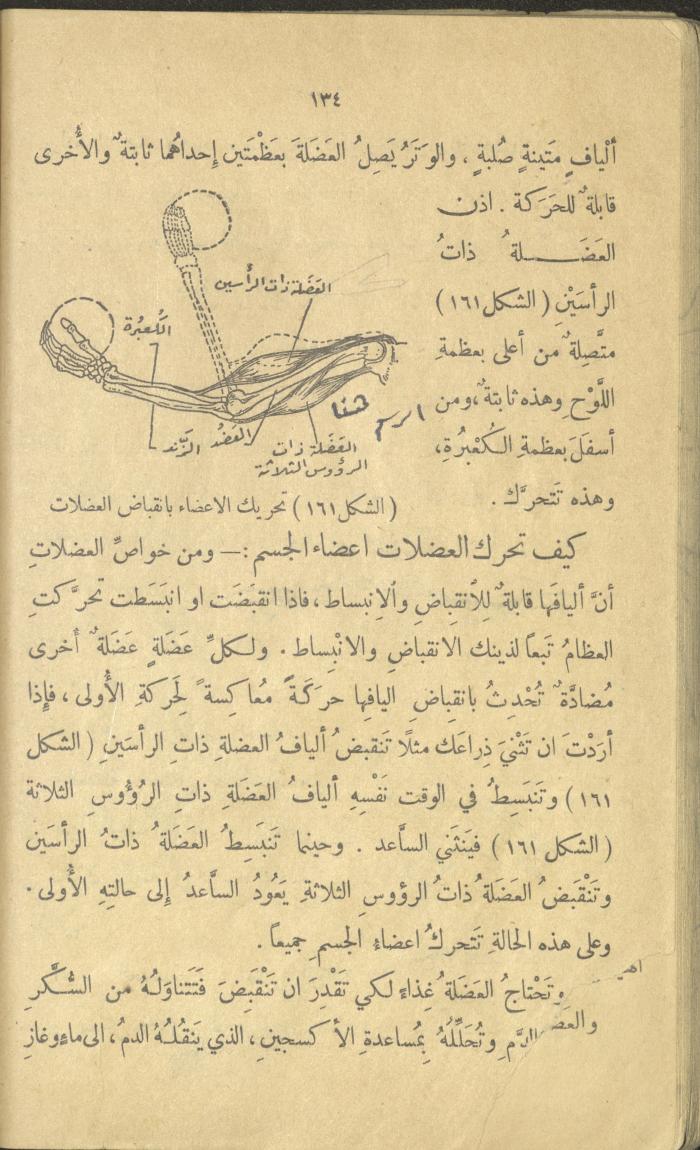 ١٣٤
ألْيافٍ مَتينةٍ صُلبةٍ ، والوَتَرُ يَصِلُ العَضَلَةَ بعَظْمَتَين إحداهُما ثابتةٌ والأُخرى
قابلةٌ للحَرَكة . اذن
العَضَلةُ ذاتُ
الرأسَيْنِ ( الشكل ١٦١ )
متَّصِلةٌ من أعلى بعظمةِ
اللَّوْحِ وهذه ثابتةٌ ، ومن
أسفَلَ بعظمةِ الكُعْبُرةِ ،
وهذه تَتحرَّك .
العَضَلة ذات الرأسين
الكُعبُرة
هنا
الرسم
الزَّند
العَضُد
العَضَلة ذات
الرؤوس الثلاثة
( الشكل ١٦١ ) تحريك الاعضاء بانقباض العضلات
كيف تحرك العضلات اعضاء الجسم : — ومن خواصِّ العضلاتِ
أنَّ أليافَها قابلةٌ لِلاْنقِباضِ والاِنبِساط ، فاذا انقبَضَت او انبَسَطت تحرَّكتِ
العظامُ تَبعاً لذينك الانقباضِ والانْبِساط . ولكلِّ عضَلةٍ عضَلةٌ أُخرى
مُضادَّةٌ تُحْدِثُ بانقِباضِ اليافِها حرَكَةً مُعاكِسةً لحِركةِ الأُولى ، فإِذا
أرَدْتَ ان تَثْنيَ ذِراعَك مثلًا تَنقبضُ أليافُ العضلةِ ذاتِ الرأسَينِ ( الشكل
١٦١ ) وتَنبَسِطُ في الوقت نَفْسِهِ أليافُ العَضَلةِ ذاتِ الرُؤوسِ الثلاثة
( الشكل ١٦١ ) فيَنثَني السَّاعد . وحينما تَنبَسِطُ العَضَلةُ ذاتُ الرأسَين
وتَنْقَبضُ العَضَلةُ ذاتُ الرؤوسِ الثلاثةِ يَعُودُ السَّاعدُ إلى حالتِهِ الأُولى .
وعلى هذه الحالةِ تَتحركُ اعضاءُ الجسمِ جميعاً .
وتَحْتاجُ العَضَلةُ غِذاءً لكي تَقْدِرَ ان تَنْقَبِضَ فَتَتناوَلُهُ من السُّكَّرِ
الدَّمِ وتُحَلِّلُهُ بمُساعدةِ الأكسجينِ ، الذي يَنقُلُهُ الدمُ ، الى ماءٍ وغازِ